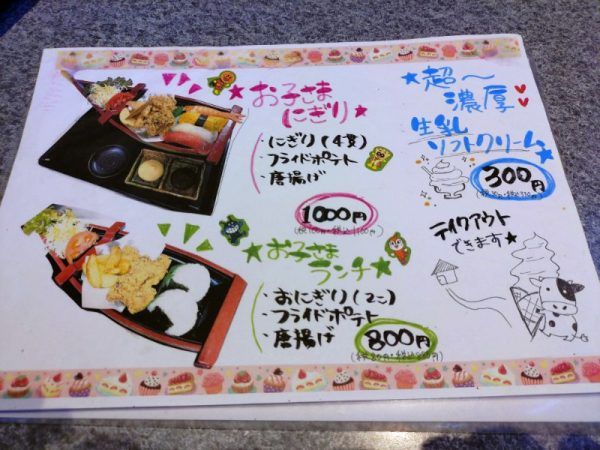 お子さま
にぎり
・にぎり(4貫)
・フライドポテト
・唐揚げ
1000円
(税100円・税込1100円)
お子さま
ランチ
・おにぎり(2こ)
・フライドポテト
・唐揚げ
800円
(税80円・税込880円)
超〜
濃厚
生乳
ソフトクリーム
300円
(税30円・税込330円)
テイクアウト
できます